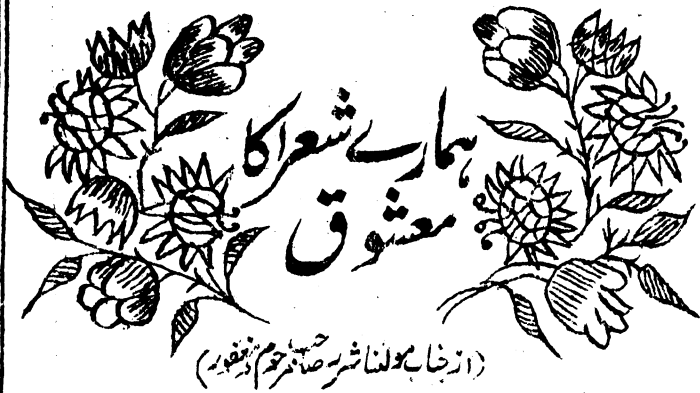 ہمارے شعرا کا
معشوق
(از جناب مولٰنا شرر صاحب مرحوم و مغفور)